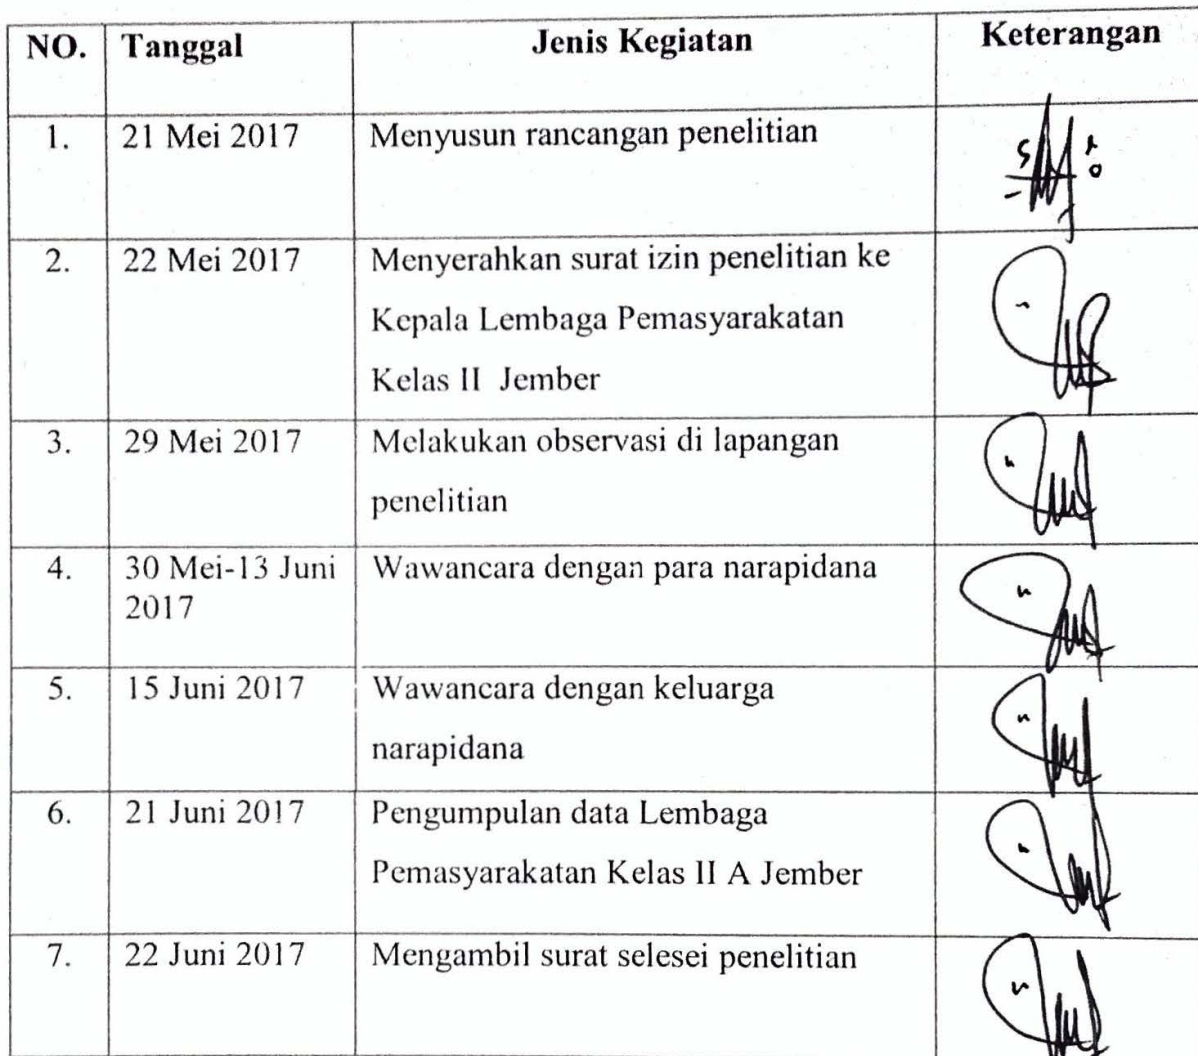 NO. Tanggal Jenis Kegiatan Keterangan
1. 21 Mei 2017 Menyusun rancangan penelitian
2. 22 Mei 2017 Menyerahkan surat izin penelitian ke
Kepala Lembaga Pemasyarakatan
Kelas II Jember
3. 29 Mei 2017 Melakukan observasi di lapangan
penelitian
4. 30 Mei-13 Juni Wawancara dengan para narapidana
2017
5. 15 Juni 2017 Wawancara dengan keluarga
narapidana
6. 21 Juni 2017 Pengumpulan data Lembaga
Pemasyarakatan Kelas II A Jember
7. 22 Juni 2017 Mengambil surat selesei penelitian